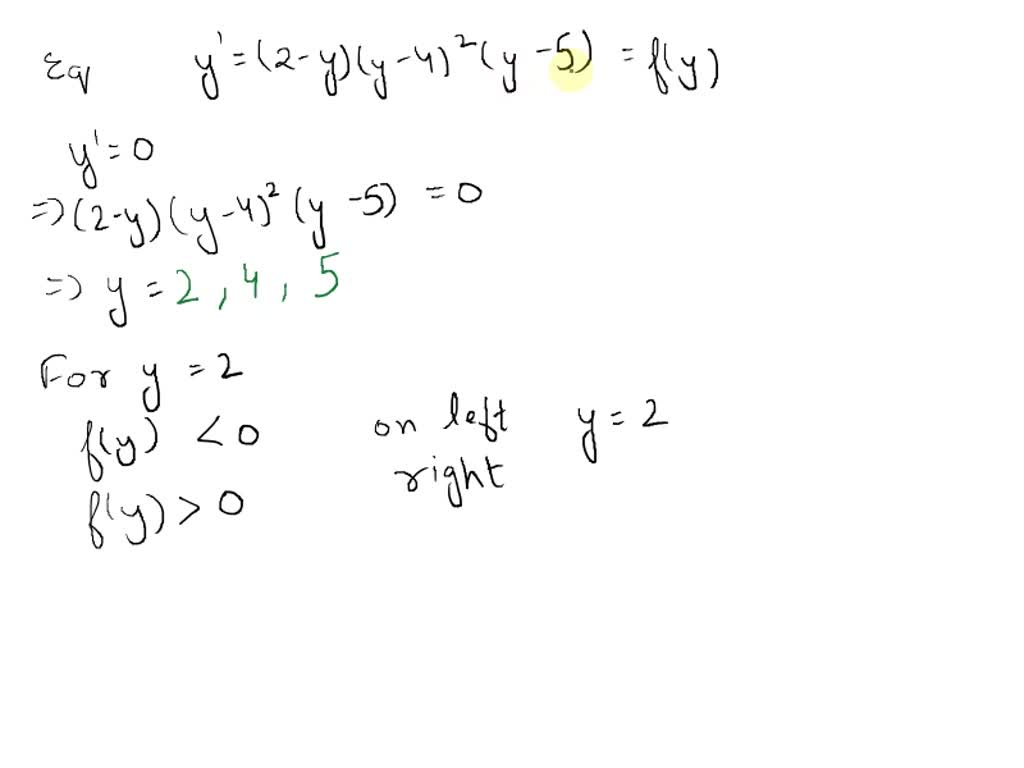 Eq y' = (2-y)(y-4)²(y-5) = f(y)
y' = 0
=> (2-y)(y-4)²(y-5) = 0
=> y = 2, 4, 5
For y = 2
f(y) < 0 on left y = 2
f(y) > 0 right